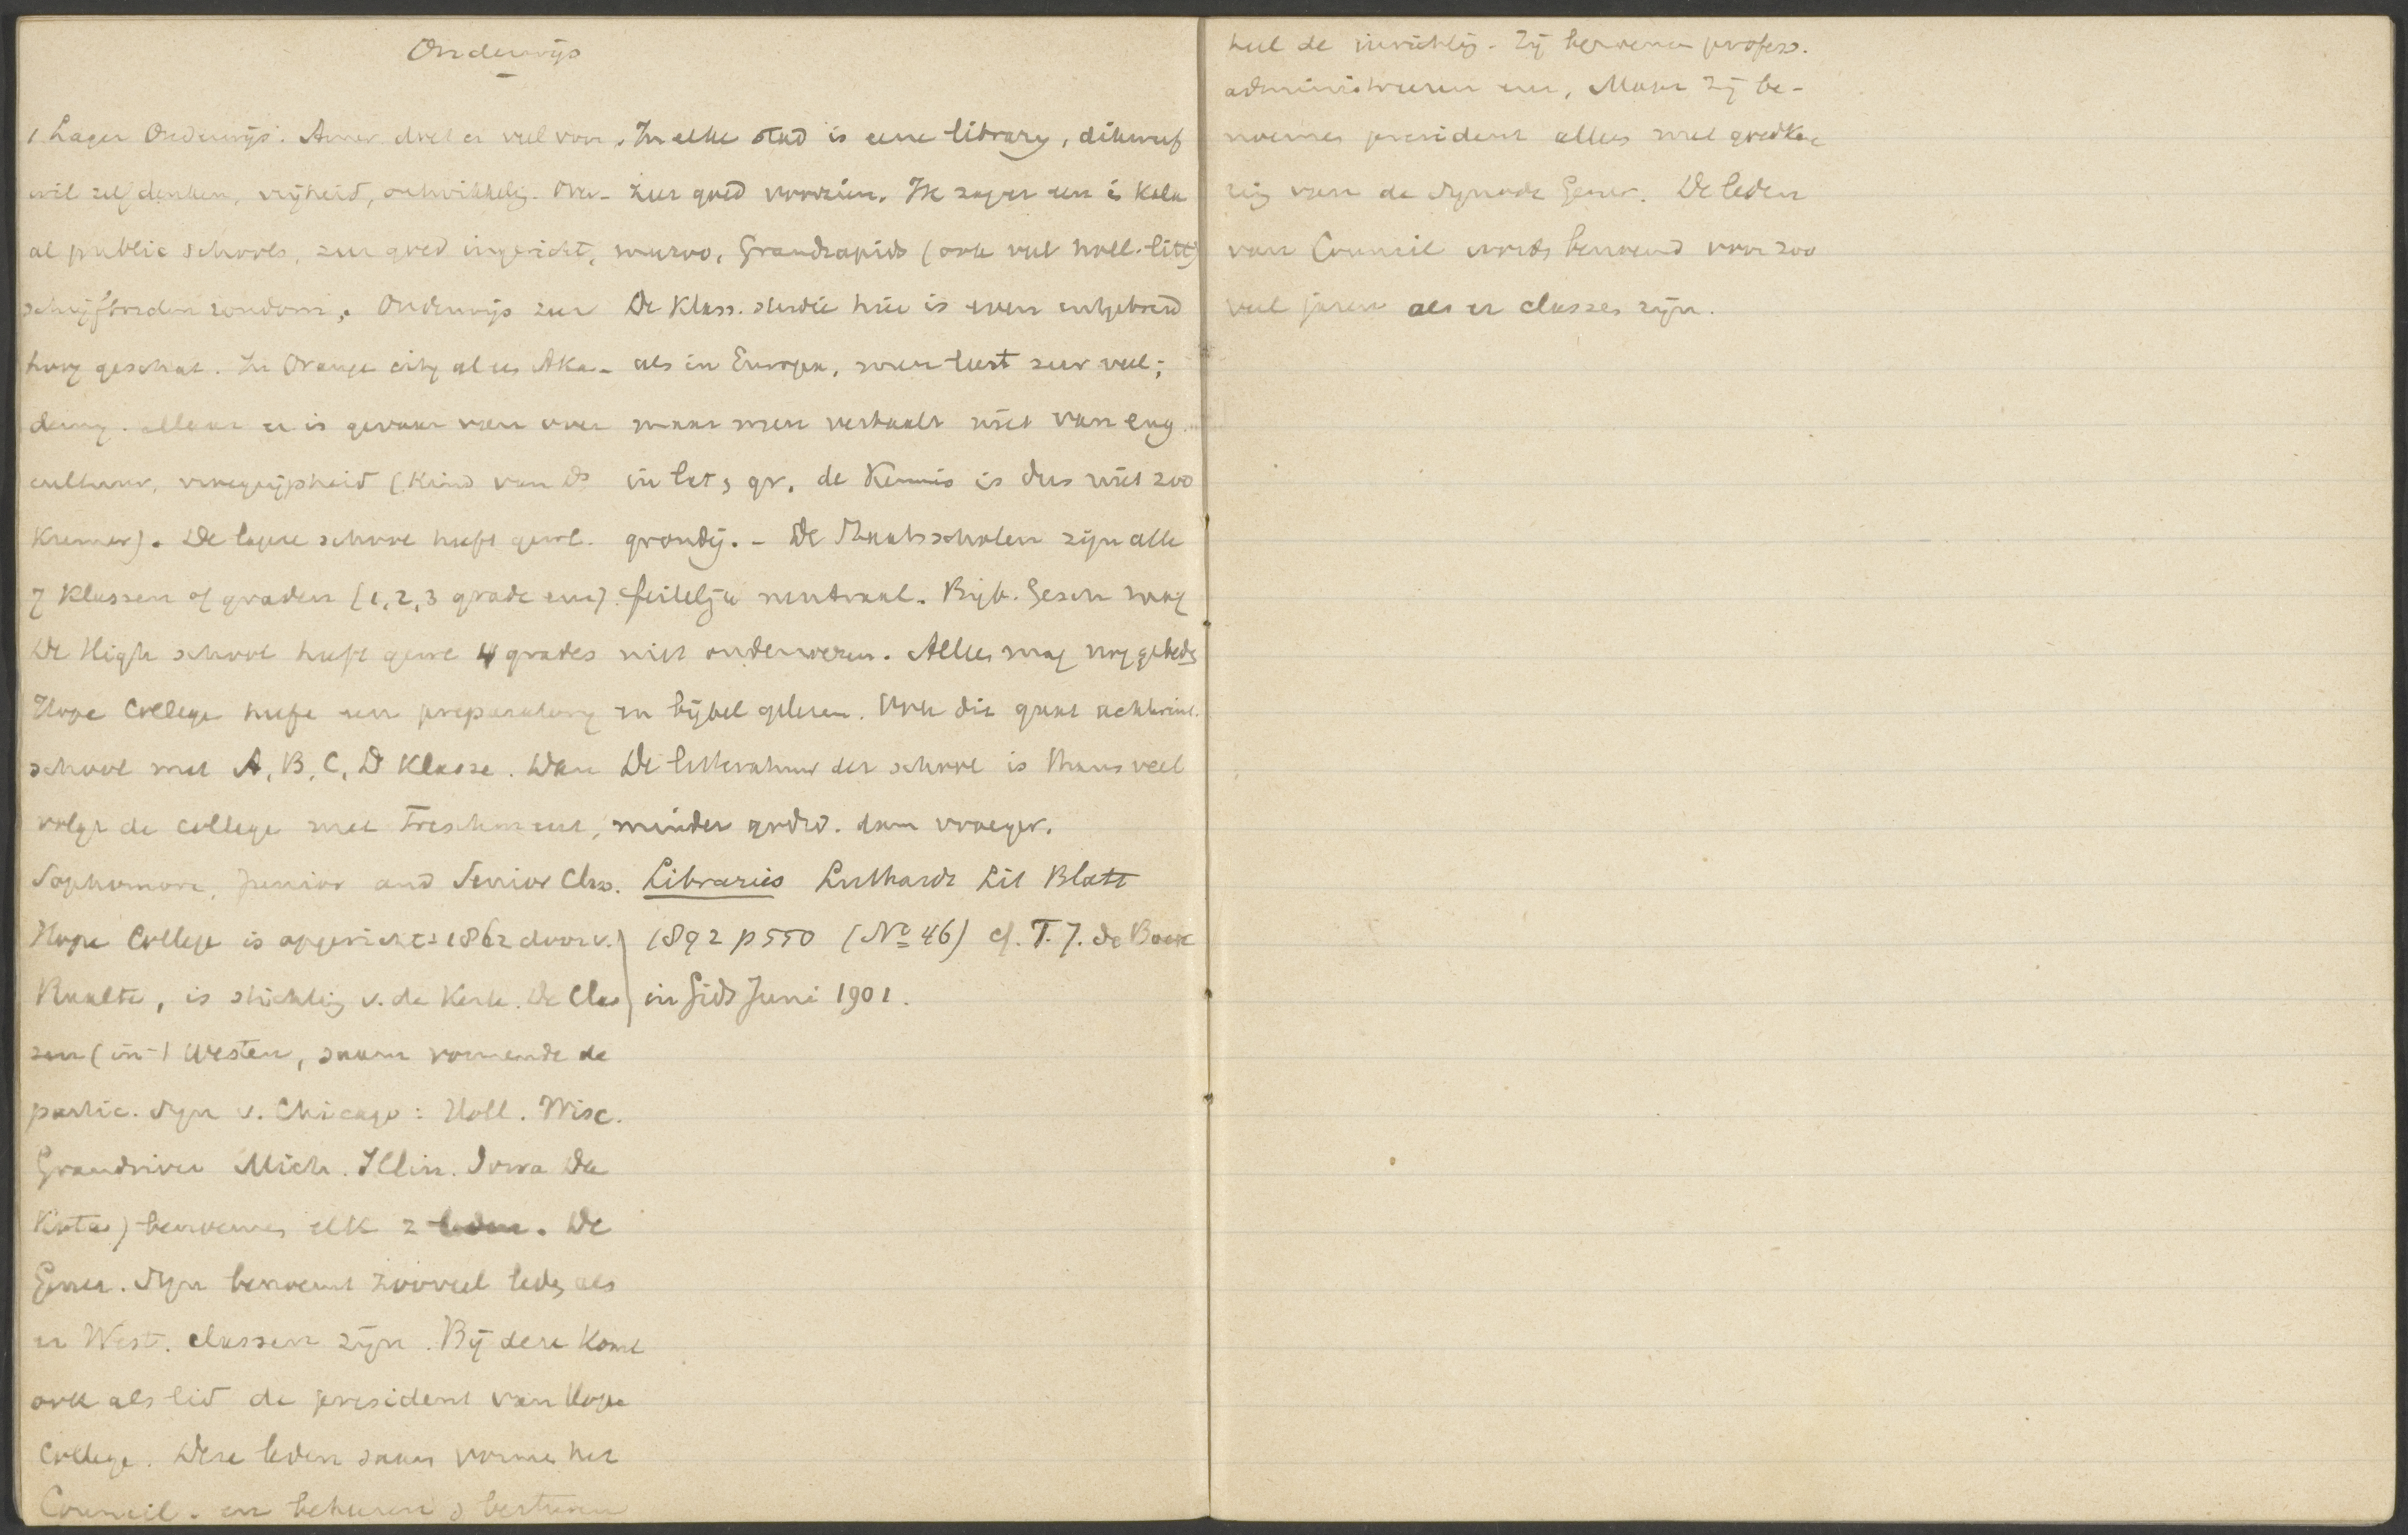 Onderwijs
1 Lager Onderwijs. Amer doet er veel voor,
wil zelf denken, vrijheid, ontwikkelig. Over-
al public schools, zeer goed ingericht,
schrijfborden rondom. Onderwijs zeer
hoog geschat. In Orange city al een Aka-
demy. Maar er is gevaar van over
cultuur, vroegrijpheid (Kind van Ds
Kremer). De lagere school heeft gew.
7 Klassen of graden (1, 2, 3 grade enz).
De High school heeft gew 4 grades
Hope College heeft een preparatory
school met A, B, C, D Klasse. Dan
volgt de college met Freshmen,
Sophomore, Junior and Senior Class.
Hope College is opgericht 1862 door v.
Raalte, is stichtig v. de Kerk. De Clas
sen (in 't Westen, saam vormende de
partic. Syn v. Chicago: Holl. Wisc.
Grandriver Mich. Illin. Iowa Da
Kota) benoemen elk 2 leden. De
Gener. Syn benoemt zooveel leden als
er West. classen zijn. Bij deze komt
ook als lid de president van Hope
College. Deze leden saam vormen het
Council. en beheeren & besturen
In elke stad is eene library, dikwerf
zeer goed voorzien. Ik zag er een in Kala
mazoo, Grandrapids (ook veel holl. litt)
De Klass. studie hier is even uitgebreid
als in Europa, men leest zeer veel;
maar men vertaalt niet van eng.
in lat, gr. de Kennis is dus niet zoo
grondig. - De Staatsscholen zijn alle
feitelijk neutraal. Bijb. Gesch mag
niet onderwezen. Alleen mag nog gebeden
en bijbel gelezen. Ook dit gaat achteruit.
De litteratuur der school is thans veel
minder godsd. dan vroeger.
Libraries Luthardt Lit Blatt
1892 p 550 (No 46) cf. T. J. de Boer
in Gids Juni 1901.
heel de inrichtig. Zij benoemen profess.
administreeren enz, Maar zij be-
noemen president alleen met goedkeu
rig van de Synode Gener. De leden
van Council worden benoemd voor zoo
veel jaren als er classes zijn.